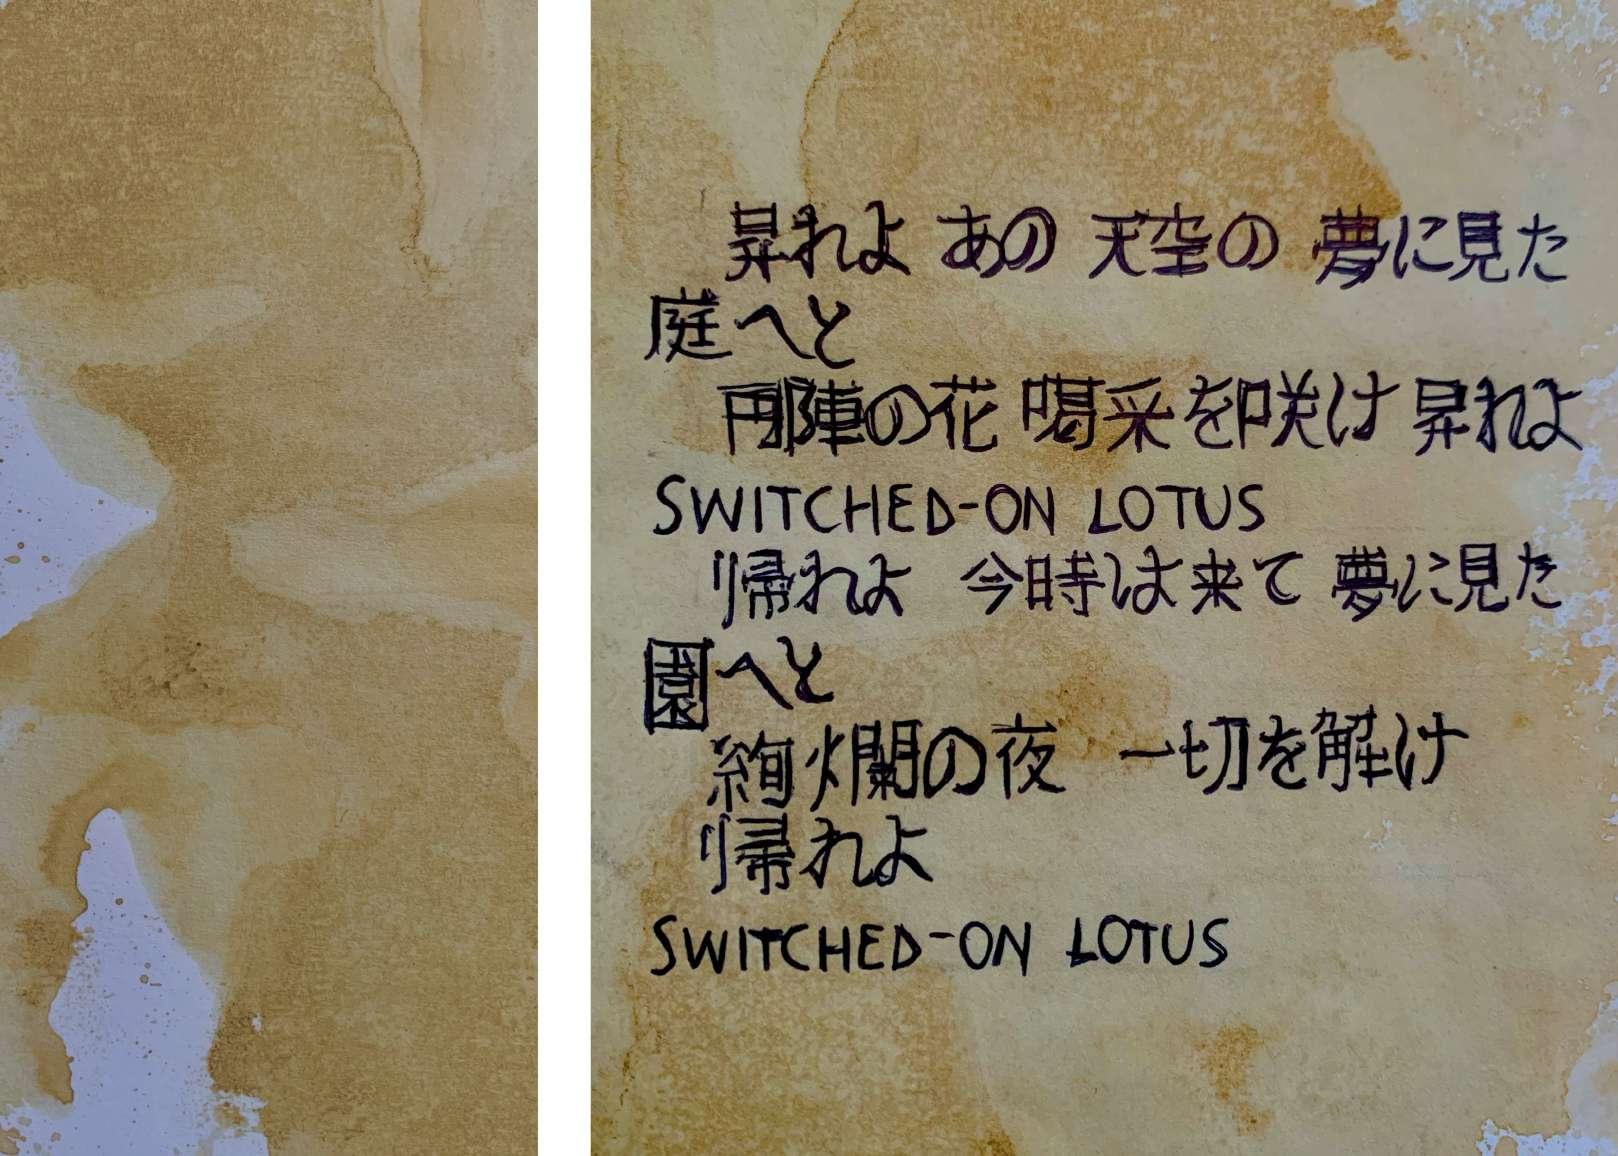 昇れよ あの 天空の 夢に見た
庭へと
円陣の花 喝采を咲け 昇れよ
SWITCHED-ON LOTUS
帰れよ 今時は来て 夢に見た
園へと
絢爛の夜 一切を解け
帰れよ
SWITCHED-ON LOTUS